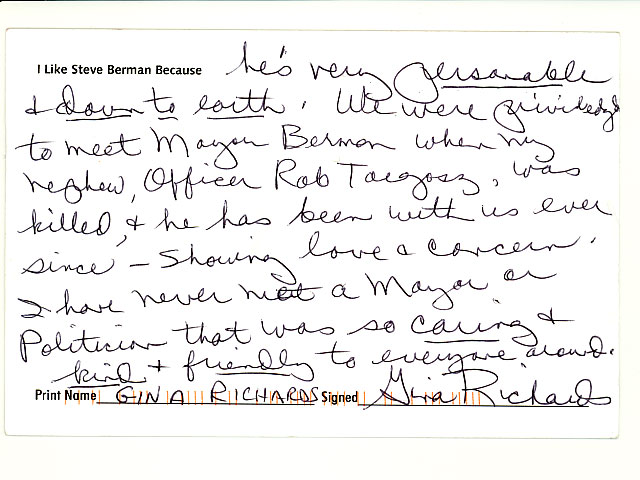 I Like Steve Berman Because he's very personable
& down to earth. We were priviledged
to meet Mayor Berman when my
nephew, Officer Rob Targosz, was
killed, & he has been with us ever
since – Showing love & concern.
I have never met a Mayor or
Politician that was so caring &
kind & friendly to everyone around.
Print Name GINA RICHARDS Signed Gina Richards